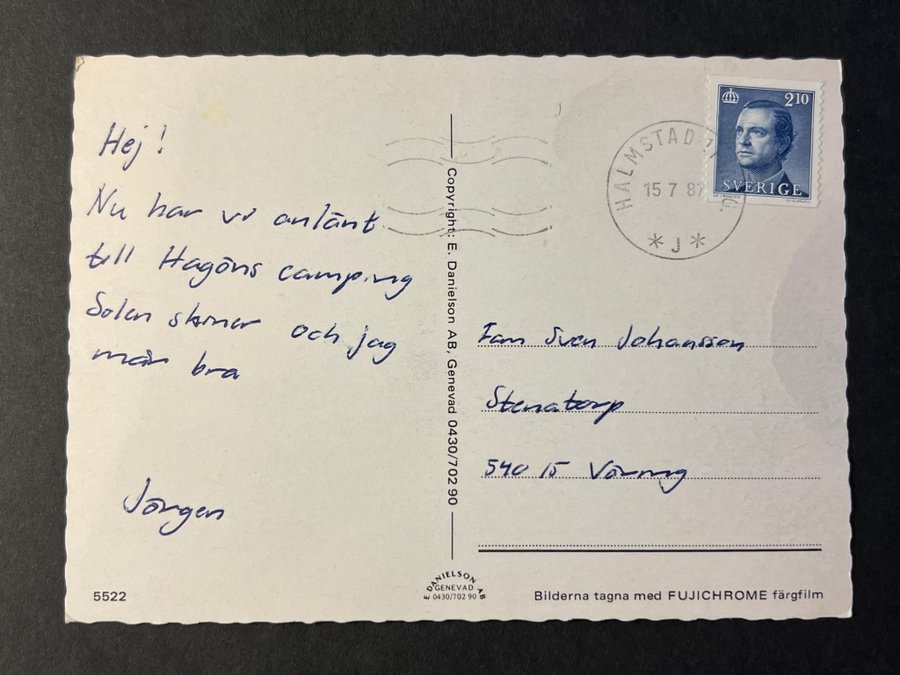 Hej!
Nu har vi anlänt
till Hagöns camping
Solen skiner och jag
mår bra
Jörgen
5522
Copyright: E. Danielson AB, Genevad 0430/702 90
E DANIELSON AB
GENEVAD
0430/702 90
210
SVERIGE
HALMSTAD 1
15 7 87
* J *
Fam Sven Johansson
Stenatorp
540 15 Väring
Bilderna tagna med FUJICHROME färgfilm